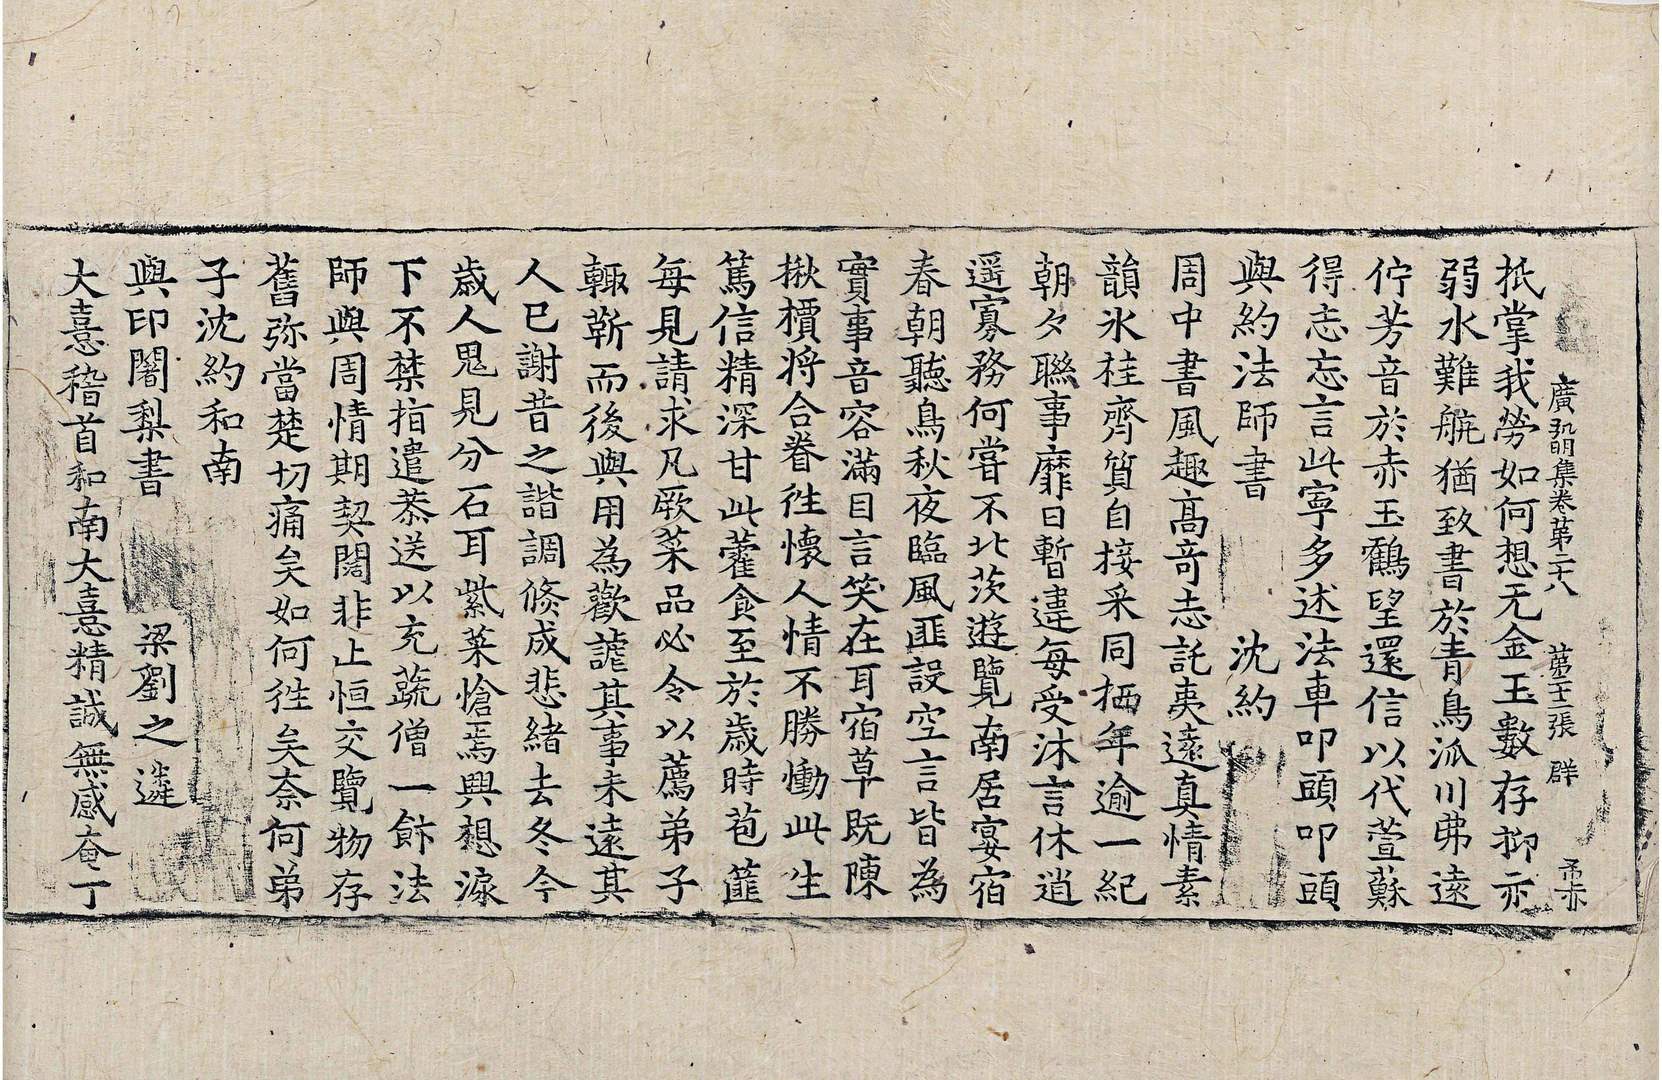 廣弘明集卷第二十八　第二十二張　群
抵掌我勞如何想无金玉數存抑亦
弱水難航猶致書於青鳥泒川弗遠
佇芳音於赤玉鶴望還信以代萱蘇
得志忘言此寧多述法車叩頭叩頭
與約法師書　沈約
周中書風趣高奇志託夷遠真情素
韻氷桂齊質自接采同栖年逾一紀
朝夕聯事靡日暫違每受沐言休逍
遥寡務何嘗不北茨遊覽南居宴宿
春朝聽鳥秋夜臨風匪設空言皆為
實事音容滿目言笑在耳宿草既陳
楸檟將合眷徃懷人情不勝慟此生
篤信精深甘此藿食至於歲時苞篚
每見請求凡厥菜品必令以薦弟子
輙靳而後與用為歡謔其事未遠其
人已謝昔之諧調倏成悲緒去冬今
歲人鬼見分石耳紫菜愴焉興想淚
下不禁指遣恭送以充蔬僧一飰法
師與周情期契闊非止恒交覽物存
舊弥當楚切痛矣如何徃矣柰何弟
子沈約和南
與印闍梨書　梁劉之遴
大憙稽首和南大憙精誠無感奄丁